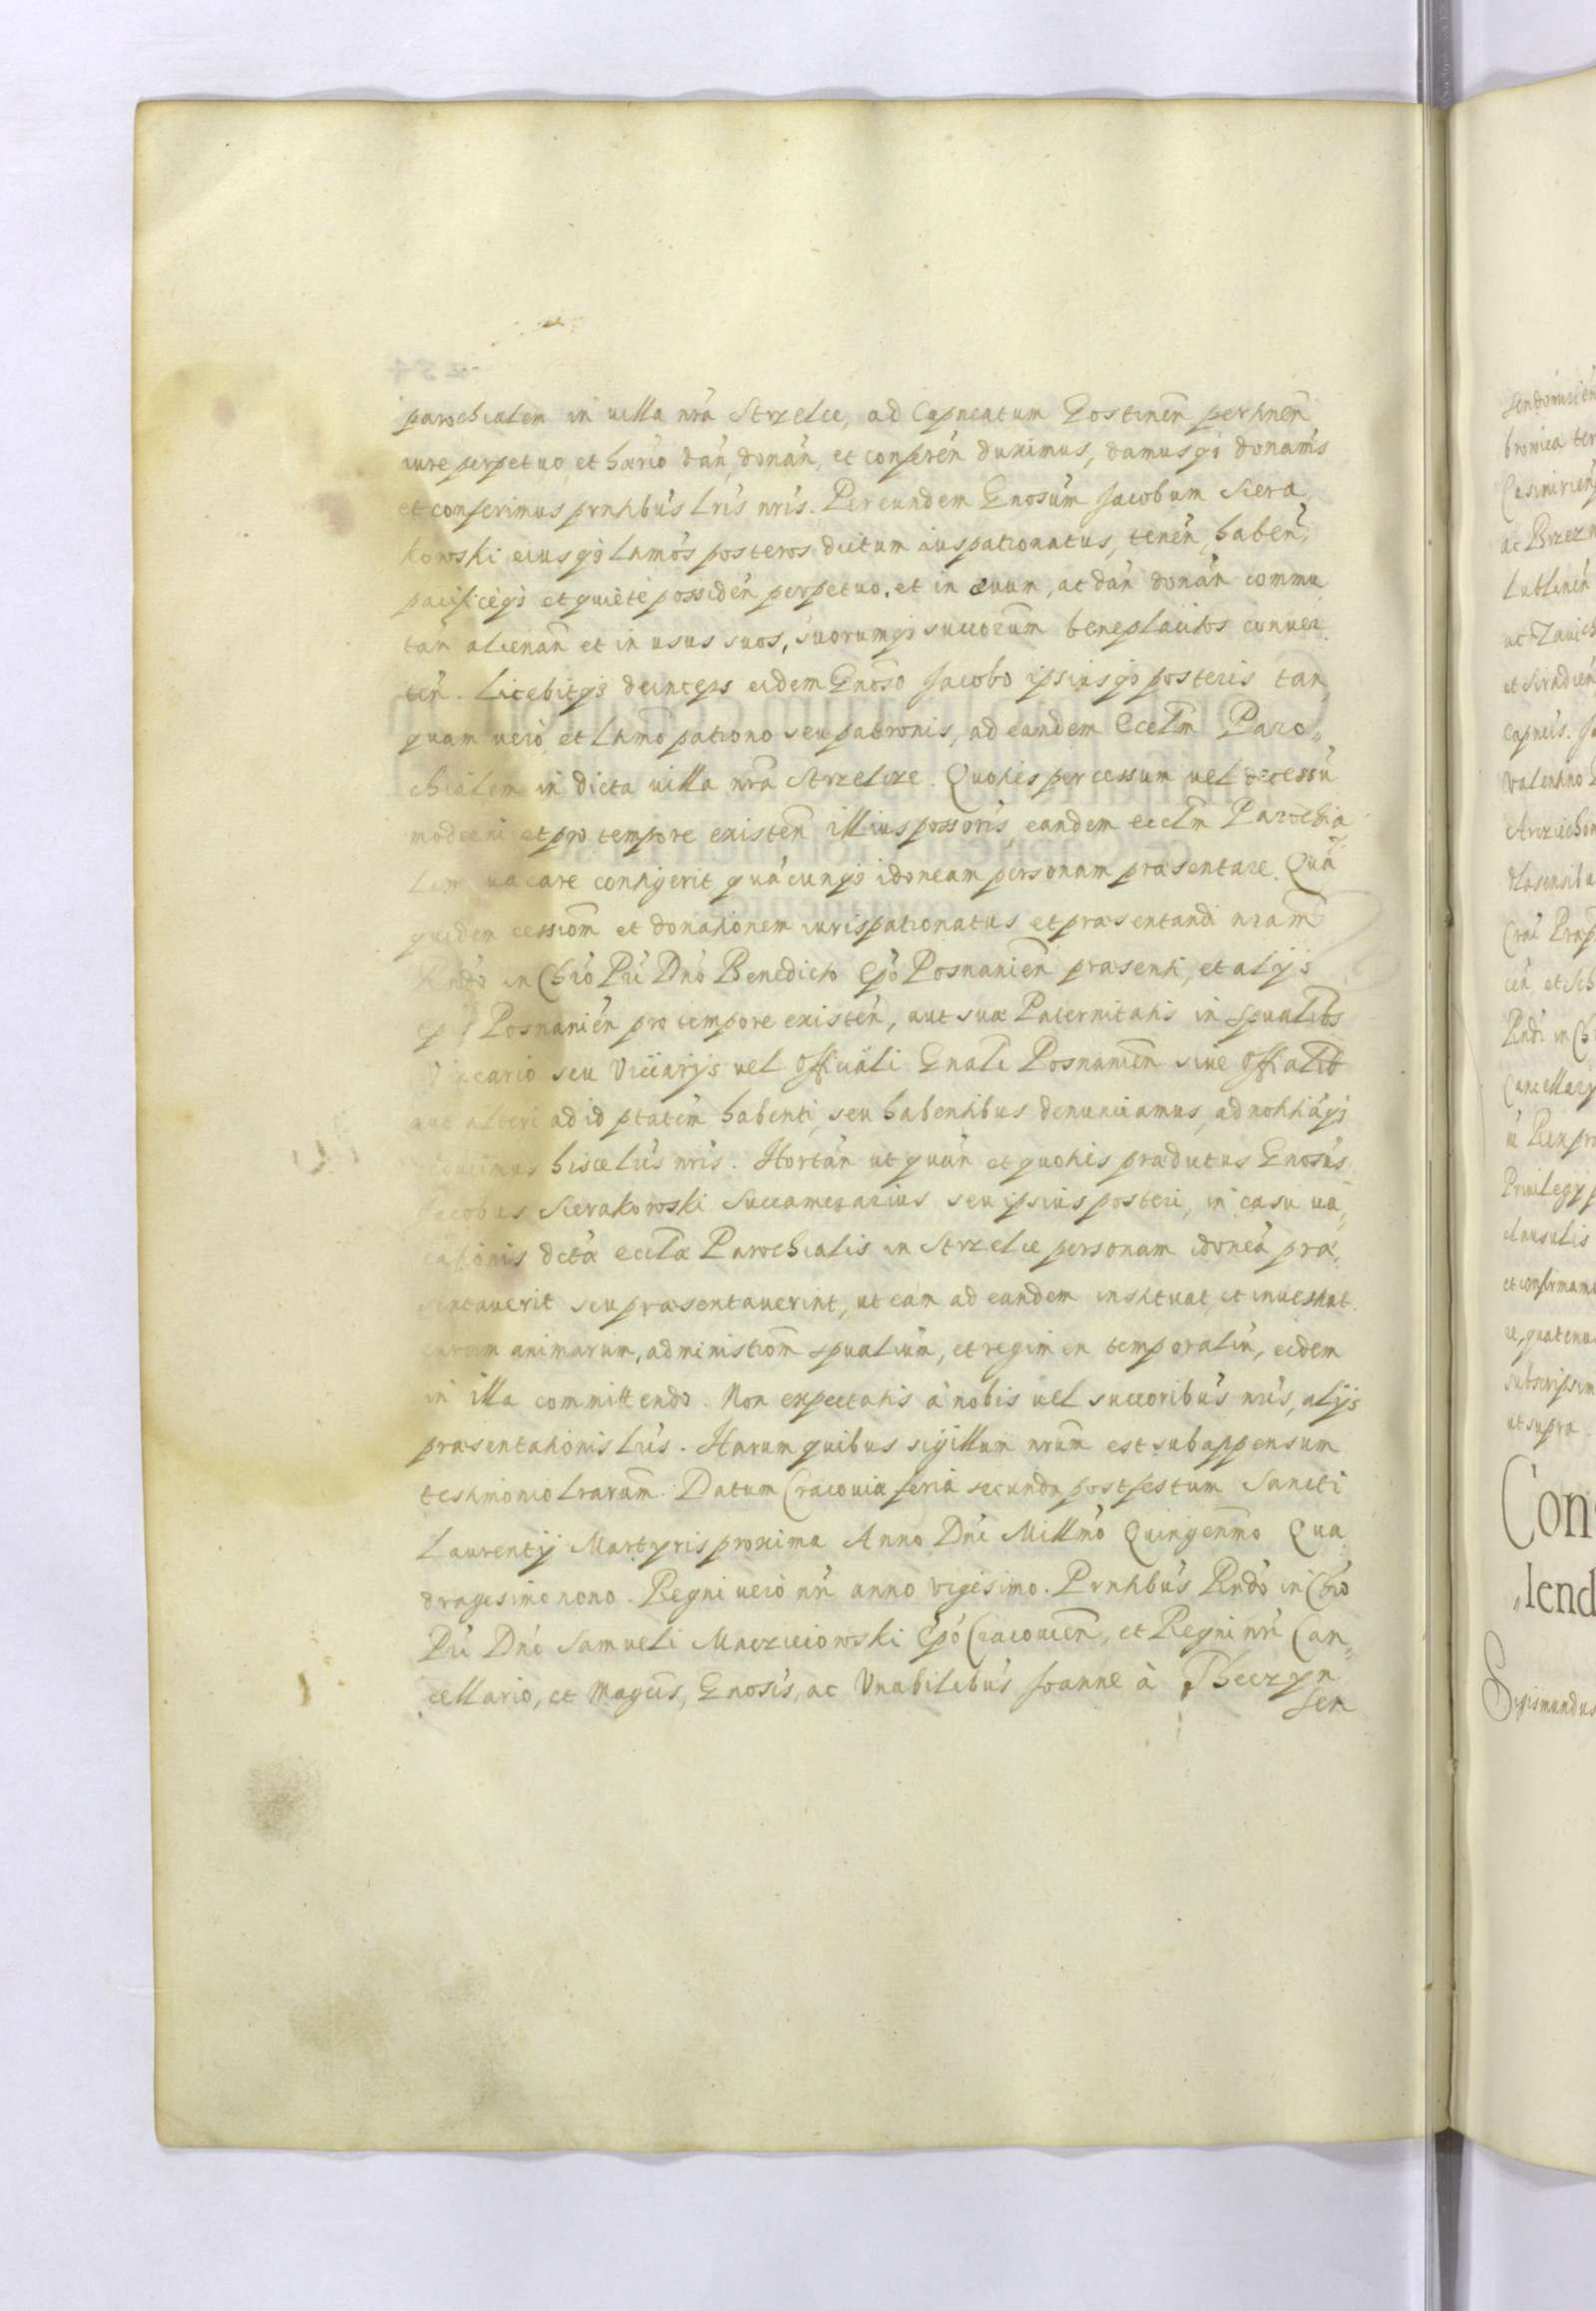 parochialem in uilla nrã Strzelce, ad Capneatum Gostinen̄ pertinen̄
iure perpetuo et hærio dan̄, donan̄, et conferen̄ duximus, damusq3 donamus
et conferimus prntibus Lris nris. Per eundem Gnosum Jacobum Siera
kowski eiusq3 Ltmos posteros dictum iuspatronatus, tenen̄, haben̄,
pacificeq3 et quiete possiden̄ perpetuo, et in æuum, ac dan̄ donan̄ commu
tan̄ alienan̄ et in usus suos, suorumq3 succorum beneplacitos conuer
ten̄. Licebitq3 deinceps eidem Gnoso Jacobo ipsiusq3 posteris tan
quam uero, et Ltmo patrono seu patronis, ad eandem Eccl̃m Paro„
chialem in dicta uilla nrã Strzelcze. Quotiès per cessum uel decessũ
moderni et pro tempore existen̄ illius possoris, eandem eccl̃m Parochia
lem uacare contigerit, quacunq3 idoneam personam præsentare. Quã
quidem cessiom̄ et donationem iurispatronatus et præsentandi nram̄
Rndo in Chro Pri Dno Benedicto Epo Posnanien̄ præsenti, et alijs
ep̃s Posnanien̄ pro tempore existen̄, aut suæ Paternitatis in spualibs
Vicario seu Vicarijs uel Officiali Gnali Posnanien̄ siue Offialib
aut alteri ad id ptatem habenti, seu habentibus denunciamus, ad notitiãq3
hisce Lris nris. Hortan̄ ut quan̄ et quotiès prædictus Gnosus
Jacobus Sierakowski Succamerarius seu ipsius posteri, in casu ua„
cationis dctæ eccl̃æ Parochialis in Strzelce personam idoneã præ„
sentauerit seu præsentauerint, ut eam ad eandem instituat, et inuestiat.
curam animarum, administiom̄ spualium, et regimen temporaliũ, eidem
in illa committendo. Non expectatis à nobis uel succoribus nris, alijs
præsentationis Lris. Harum quibus sigillum nrum est subappensum
testimonio Lrarum. Datum Cracouiæ feria secunda post festum Sancti
Laurentij Martyris proxima Anno Dni Millmo Quingenmo Qua
dragesimo nono. Regni uero nri anno vigesimo. Prntibus Rndo in Chro
Pri Dno Samueli Macziciowski Epo Cracouien̄, et Regni nri Can„
cellario, et Magcis, Gnosis, ac Vnabilibus Joanne à Theczyn
Sen